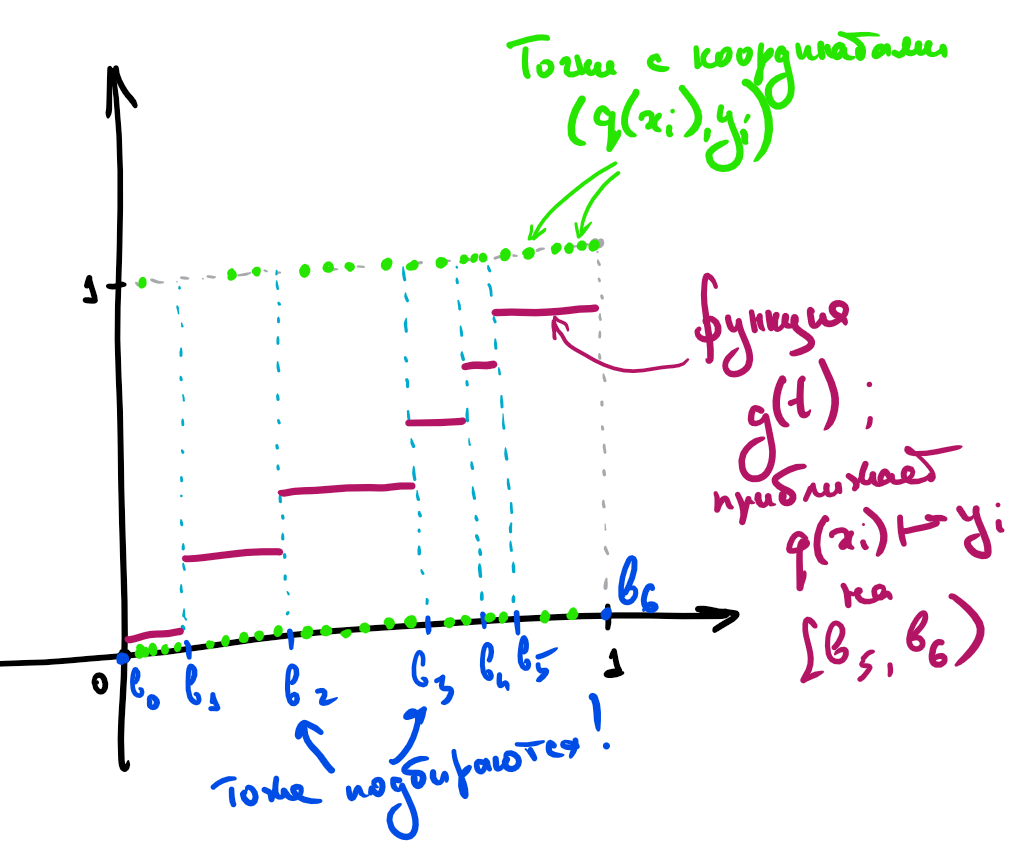 Точки с координатами
(q(xᵢ), yᵢ)
1
функция
g(t) ;
приближает
q(xᵢ) ↦ yᵢ
на
[b₅, b₆)
b₆
0
b₀ b₁ b₂ b₃ b₄ b₅ 1
Тоже подбираются!